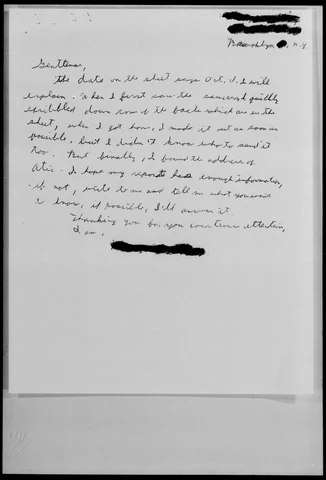 Brooklyn, N.Y.
Gentlemen,
The date on the sheet says Oct. I will
explain. When I first saw the saucers I quickly
scribbled down some of the facts which are in the
sheet, when I got home, I made it out as soon as
possible, but I didn't know who to send it
too. But finally, I found the address of
Atic. I hope my reports has enough information,
if not, write to me and tell me what you want
to know, if possible, I'll answer it
Thanking you for your courteous attention,
I am,